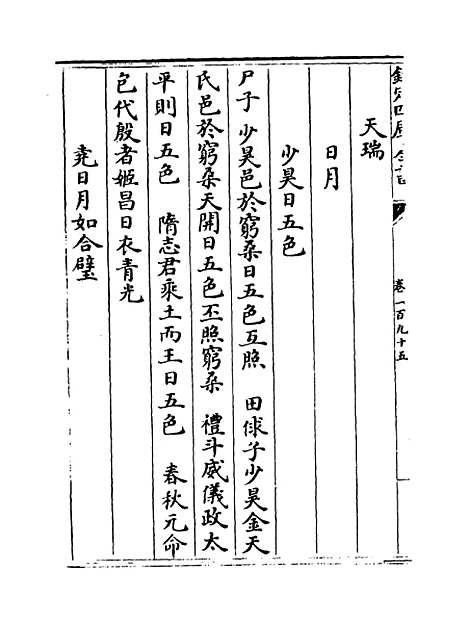 欽定四庫全書
卷一百九十五
天瑞
日月
少昊日五色
尸子少昊邑於窮桑日五色互照 田俅子少昊金天
氏邑於窮桑天開日五色丕照窮桑 禮斗威儀政太
平則日五色 隋志君乘土而王日五色 春秋元命
包代殷者姬昌日衣青光
堯日月如合璧